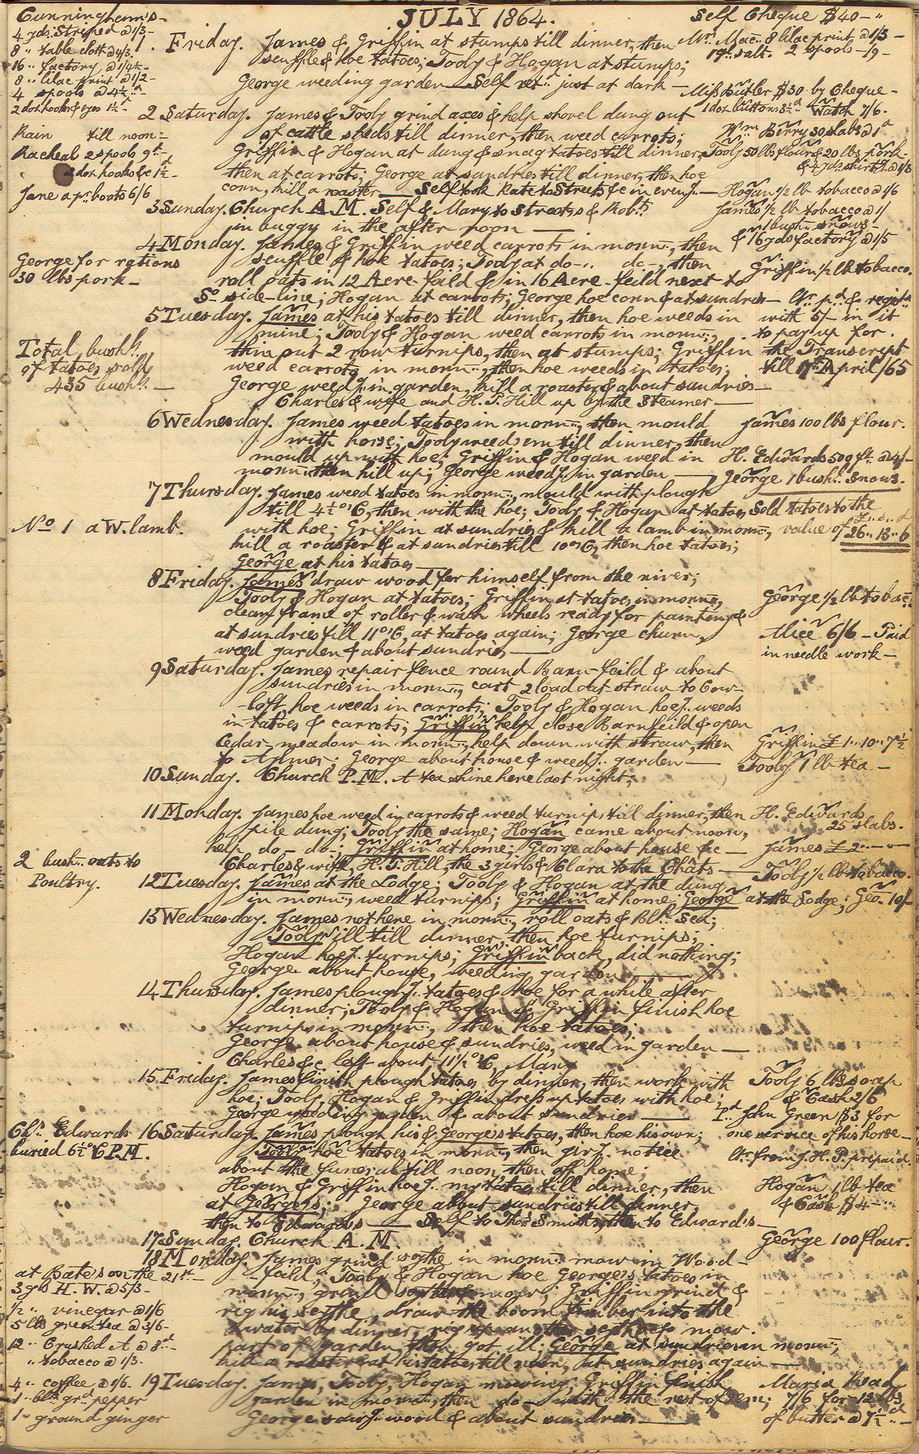 JULY 1864.
Cunningham's-
4 yds. Striped @1/3-
8 " table cloth @4/3
16 " factory @1/4½-
8 " lilac print @1/2-
4 spools @4½d-
2 doz hooks & eyes 1½d-
Rain till noon-
Racheal 2 spools 9d-
2 doz hooks &c 1½-
Jane a pr. boots 6/6
George for rations
30 lbs pork-
Total, bush.
of tatoes sold
435 bush. -
No 1 a W. lamb.
2 bush. oats to
Poultry.
Chs. Edwards
buried 6½ o'C P.M.
at Bates on the 21st-
3 yds H. W. @5/3-
½ " vinegar @1/6
5 lb green tea @3/6-
12 " Crushed A @8d-
" tobacco @1/3-
4 " coffee @1/6.
1 " blk. gr. pepper
1 " ground ginger
1 Friday. James & Griffin at stumps till dinner, then
scuffle & hoe tatoes; Tooly & Hogan at stumps;
George weeding garden - Self ret. just at dark -
2 Saturday. James & Tooly grind axes & help shovel dung out
of cattle sheds till dinner, then weed carrots;
Griffin & Hogan at dung & snag tatoes till dinner,
then at carrots; George at sundries till dinner, then hoe
corn, hill a roaster - Self took Kate to Streets &c in eveng. -
3 Sunday. Church A.M. Self & Mary to Streets & Robt.
in buggy in the after noon -
4 Monday. James & Griffin weed carrots in morn., then
scuffle & hoe tatoes; Tooly at do-, do-, then
roll oats in 12 Acre feild & in 16 Acre feild next to
So side-line; Hogan at carrots; George hoe corn & at sundries -
5 Tuesday. James at his tatoes till dinner, then hoe weeds in
mine; Tooly & Hogan weed carrots in morn.,
thin out 2 row turnips, then at stumps; Griffin
weed carrots in morn., then hoe weeds in tatoes;
George weedg. in garden, hill a roaster & about sundries -
Charles & wife and H. T. Hill up by the Steamer -
6 Wednesday. James weed tatoes in morn., then mould
with horse; Tooly weeds em till dinner, then
mould up with hoe; Griffin & Hogan weed in
morn. then hill up; George weedg. in garden -
7 Thursday. James weed tatoes in morn., mould with plough
till 4½ o'C, then with the hoe; Tooly & Hogan at tatoes
with hoe; Griffin at sundries & kill a lamb in morn.,
hill a roaster & at sundries till 10 o'C, then hoe tatoes;
George at his tatoes -
8 Friday. James draw wood for himself from the river;
Tooly & Hogan at tatoes; Griffin at tatoes in morn.,
clean frame of roller & wash wheels ready for painting &
at sundries till 11 o'C, at tatoes again; George churn,
weed garden & about sundries -
9 Saturday. James repair fence round Barn-feild & about
sundries in morn., cart 2 load out straw to Cow-
loft, hoe weeds in carrots; Tooly & Hogan hoeg. weeds
in tatoes & carrots; Griffin help close Barn feild & open
Cedar meadow in morn., help down with straw, then
to Aylmer; George about house & weedg. garden -
10 Sunday. Church P.M. A tea shine here last night;
11 Monday. James hoe weed in carrots & weed turnips till dinner, then
pile dung; Tooly the same; Hogan came about noon,
help do- do-; Griffin at home; George about house &c -
Charles & wife, H. T. Hill, the 3 girls & Clara to the Chats -
12 Tuesday. James at the Lodge; Tooly & Hogan at the dung
in morn., weed turnips; Griffin at home; George at the Lodge; Geo. 10/-
13 Wednesday. James not here in morn., roll oats & Blk. Sea;
Tooly ill till dinner, then hoe turnips;
Hogan hoeg. turnips; Griffin back, did nothing;
George about house, weeding garden -
14 Thursday. James plough tatoes & hoe for a while after
dinner; Tooly & Hogan & Griffin finish hoe
turnips in morn., then hoe tatoes;
George about house & sundries, weed in garden -
Charles &c left about 11½ o'C, Mary
15 Friday. James finish plough tatoes by dinner, then work with
hoe; Tooly, Hogan & Griffin dress up tatoes with hoe;
George weeding garden & about sundries -
16 Saturday. James plough his & George's tatoes, then hoe his own;
Tooly hoe tatoes in morn., then give notice
about the funeral till noon, then off home;
Hogan & Griffin hoeg. my tatoes till dinner, then
at George's; George about sundries till dinner,
then to Edwards's - Self to Thos Smiths, then to Edward's -
17 Sunday. Church A.M.
18 Monday. James grind scythe in morn. mow in Wood-
feild; Tooly & Hogan hoe George's tatoes in
morn., grind scythes & mow; Griffin grind &
rig his scythe, draw the boom timber into the
water by dinner, then mow.
part of garden, then got ill; George at sundries in morn.,
hill a roaster & at his tatoes till noon, at sundries again -
19 Tuesday. James, Tooly, Hogan mowing; Griffin finish
garden in morn., then do- with the rest of em;
George sawg. wood & about sundries -
Self Cheque $40-"
Mrs. Mac. 8 lilac print @1/3-
19 lb salt. 2 spools -/9-
Miss Butler $30 by Cheque-
1 doz buttons 3½d Watch 7/6.
Wm Berry 30 slabs @1d
Tooly 50 lbs flour & 20 lbs pork-
& 4 yds shirtg. @1/3
Hogan ½ lb tobacco @1/6
James ½ lb tobacco @1/
1 bush. snows-
& 16 yds factory @1/5
Griffin ½ lb tobacco.
Ltr. pd. & regist.
with 5/- in it
to pay up for
the Transcript
till 7th April/65
James 100 lbs flour.
H. Edwards 500 ft. @4/-
George 1 bush. snows.
Sold tatoes to the
value of £26.. 13.. 6
George ½ lb tobac.
Alice 6/6 - Paid
in needle work-
Griffin £1..10..7½
Tooly 1 lb tea -
H. Edwards
25 slabs.
James £2..-..-
Tooly ½ lb tobacco.
Tooly 6 lbs soap
& Cash 2/6
Pd. John Green $3 for
one service of his horse-
Ltr. from J. H. P. prepaid.
Hogan 1 lb tea
& Cash $4-
George 100 flour.
Maria Wad
1/6 for 12 lbs
of butter @7½d